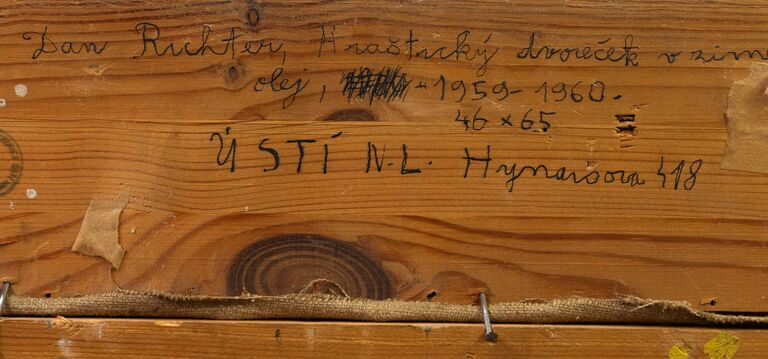 Dan Richter, Hraštický dvoreček v zimě
olej, - 1959 - 1960.
46 x 65
ÚSTÍ N.L. Hynaisova 418